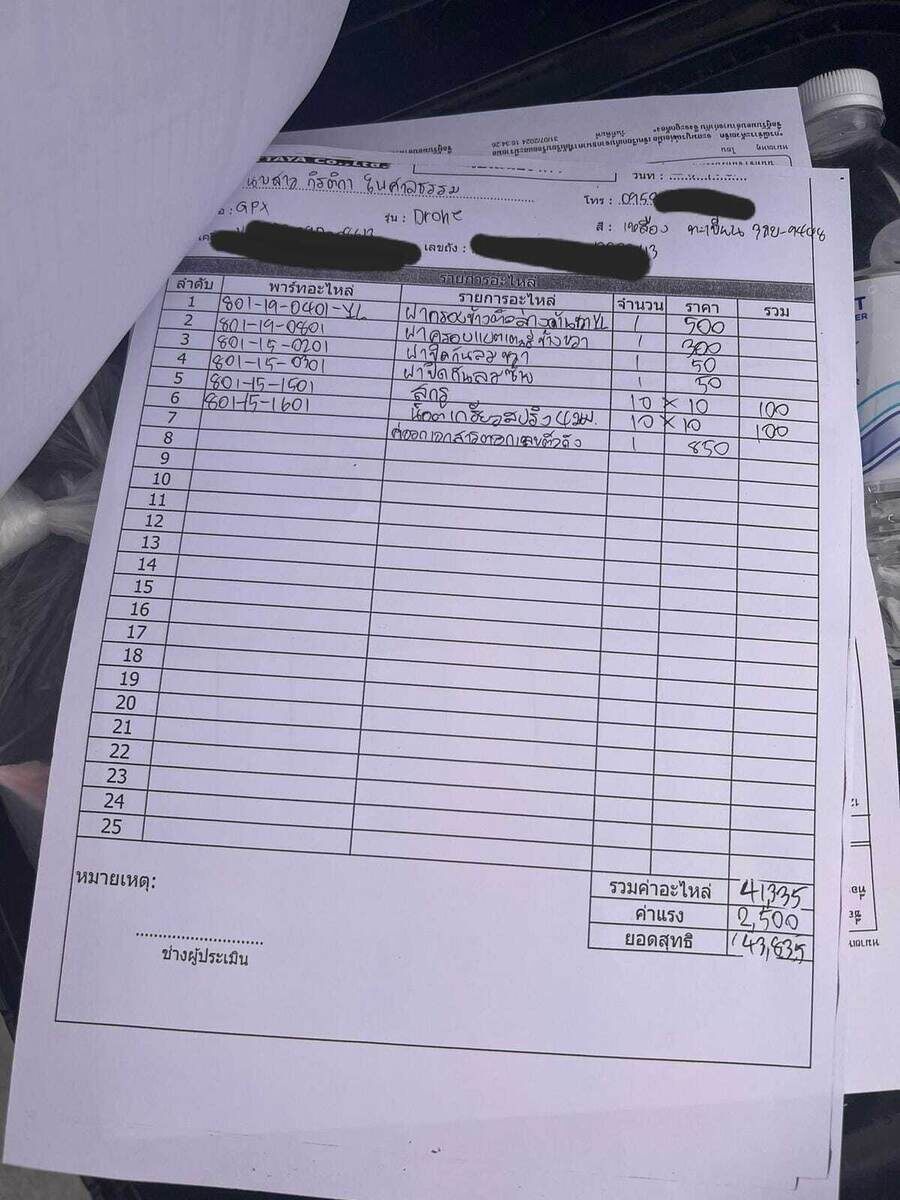 TAYA Co.,Ltd.
31/07/2024 16:34:26
วันที่
นางสาว กิรติกา ในศาลธรรม
โทร : 0959
GPX
รุ่น : Drone
สี : เหลือง ทะเบียน
เลขถัง :
รายการอะไหล่
ลำดับ พาร์ทอะไหล่ รายการอะไหล่ จำนวน ราคา รวม
1 801-19-0401-YL 1 500
2 801-19-0801 ฝาครอบแบตเตอรี่ข้างขวา 1 300
3 801-15-0201 ฝาปิดกันลมขวา 1 50
4 801-15-0301 ฝาปิดกันลมซ้าย 1 50
5 801-15-1501 สกรู 10 × 10 100
6 801-15-1601 น๊อตเกลียวสปริง 4 มม. 10 × 10 100
7 1 850
8
9
10
11
12
13
14
15
16
17
18
19
20
21
22
23
24
25
หมายเหตุ:
รวมค่าอะไหล่ 41,335
ค่าแรง 2,500
ยอดสุทธิ 43,835
ช่างผู้ประเมิน